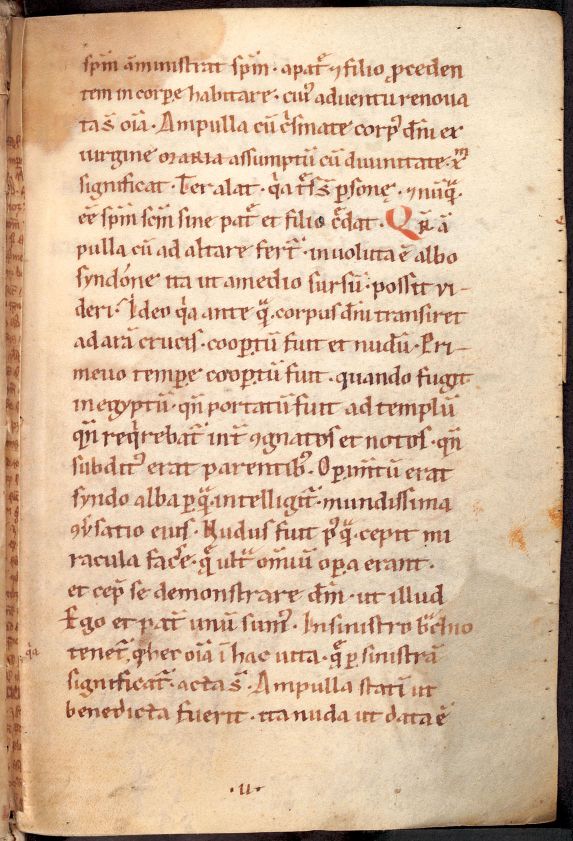 sp̄m āministrat sp̄m · a pat̄ ⁊ filio ꝓceden
tem in corpe habitare · cuiꝰ aduentu renoua
ta s̄ oīa · Ampulla cū c̄smate corpꝰ dn̄i ex
uirgine MARIA assumptū cū diuinitate · x̄m
significat · Ter alat · q̄a t̄s s̄ psonę · ⁊ nūq̄
ēē sp̄m sc̄m sine pat̄ et filio c̄dat · Qn̄ ā
pulla cū ad altare fert̄ · inuoluta ē albo
syndóne ita ut a medio sursū · possit ui-
deri · Ideo q̄a ante q̄ · corpus dn̄i transiret
ad arā crucis · coopꝑtū fuit et nudū · Pri-
meuo tempꝑe coopꝑtū fuit · quando fugit
in egyptū · qn̄ portatū fuit ad templū
qn̄ req̄rebat̄ int̄ ⁊gnatos et notos · qn̄
subditꝰ erat parentibꝰ · Opꝑimtū erat
syndo alba p q̄ intelligit̄ · mundissima
⁊ūsatio eius · Nudus fuit pꝰq̄ · cepit mi
racula fac̄e · q̄ ult̄ om̄iū opꝑa erant ·
et cep̄ se demonstrare dm̄ · ut illud
Ego et pat̄ unū sumꝰ · In sinistro b̄chio
tenet̄, q̄
her oīa ī hac uita · q̄ p sinistrā
significat̄ · acta s̄ · Ampulla statī ut
benedicta fuerit · ita nuda ut data ē
q̄a
· ii ·